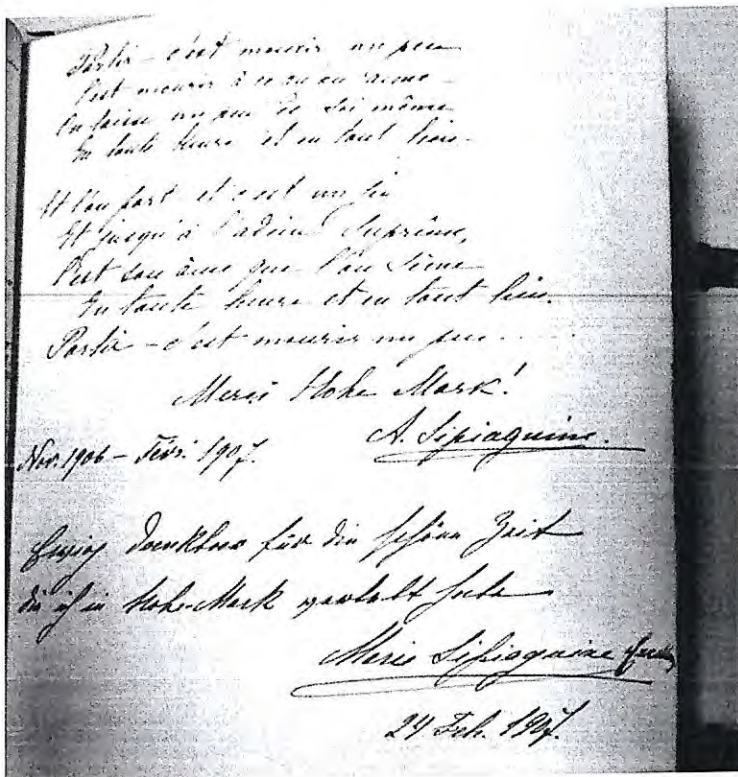 Partir – c'est mourir un peu
C'est mourir à ce qu'on aime –
On laisse un peu de soi même
En toute heure et en tout lieu –
Et l'on part et c'est un jeu
Et jusqu'à l'adieu Suprême,
C'est son âme que l'on sème
En toute heure et en tout lieu.
Partir – c'est mourir un peu ....
Merci Hohe Mark!
A. Sipiaguine.
Nov. 1906 – Févr. 1907.
Ewig dankbar für die schöne Zeit
die ich in Hohe Mark verlebt habe
Marie Sipiaguine
24 Feb. 1907.